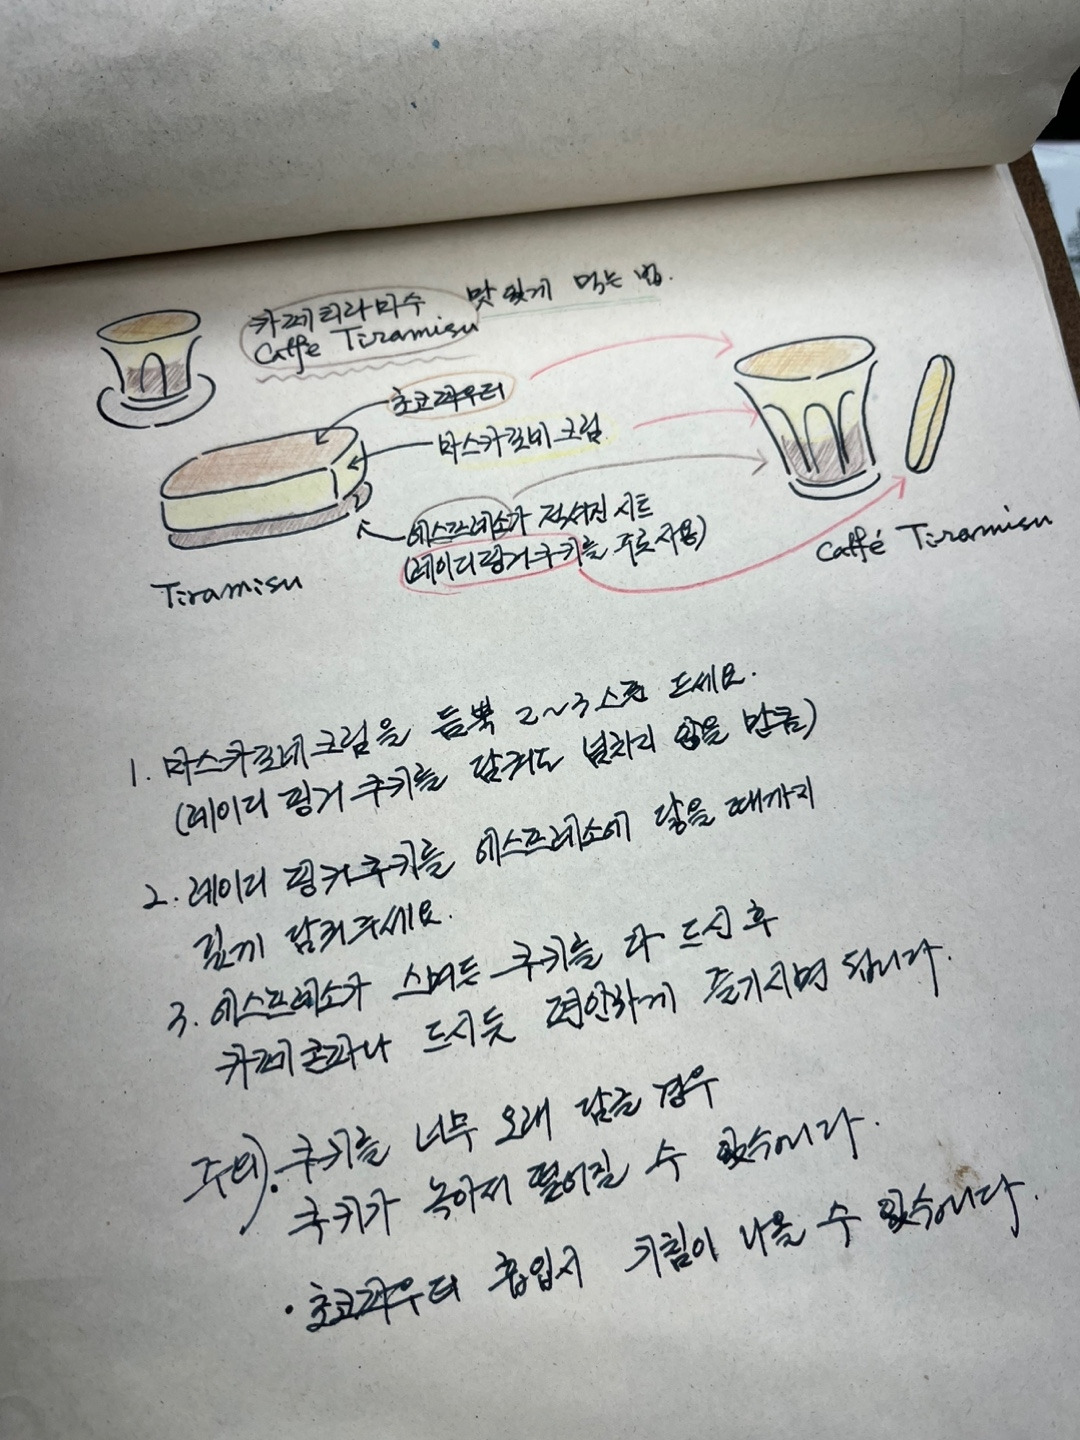 카페 티라미수 맛있게 먹는 법.
Caffé Tiramisu
초코파우더
마스카포네 크림
에스프레소가 적셔진 시트
(레이디핑거쿠키를 주로 사용)
Tiramisu
Caffé Tiramisu
1. 마스카포네크림을 듬뿍 2~3스푼 드세요.
(레이디 핑거 쿠키를 담궈도 넘치지 않을 만큼)
2. 레이디 핑거쿠키를 에스프레소에 닿을 때까지
깊게 담궈주세요.
3. 에스프레소가 스며든 쿠키를 다 드신 후
카페콘파나 드시듯 편안하게 즐기시면 됩니다.
주의). 쿠키를 너무 오래 담글 경우
쿠키가 녹아서 떨어질 수 있습니다.
• 초코파우더 흡입시 기침이 나올 수 있습니다.